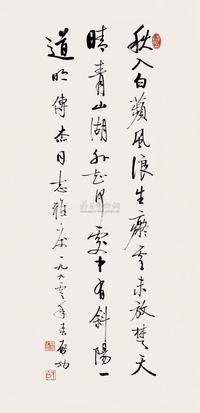 秋入白蘋風浪生癡雲未放楚天
晴青山湖外知何處中有斜陽一
道明傳杰同志雅 一九八零年春启功